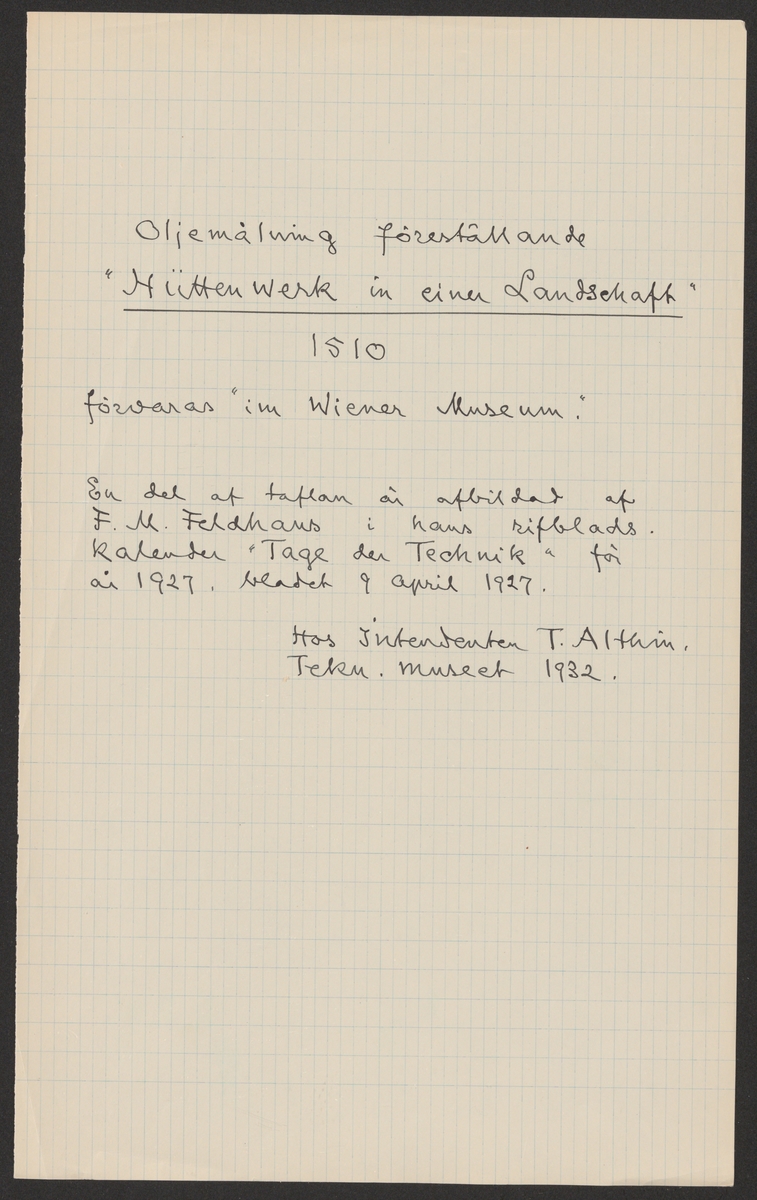 Oljemålning föreställande
"Hüttenwerk in einer Landschaft"
1510
förvaras "im Wiener Museum."
En del af taflan är afbildad af
F. M. Feldhaus i hans rifblads.
kalender "Tage der Technik" för
år 1927. bladet 9 april 1927.
Hos Intendenten T. Althin.
Tekn. museet 1932.